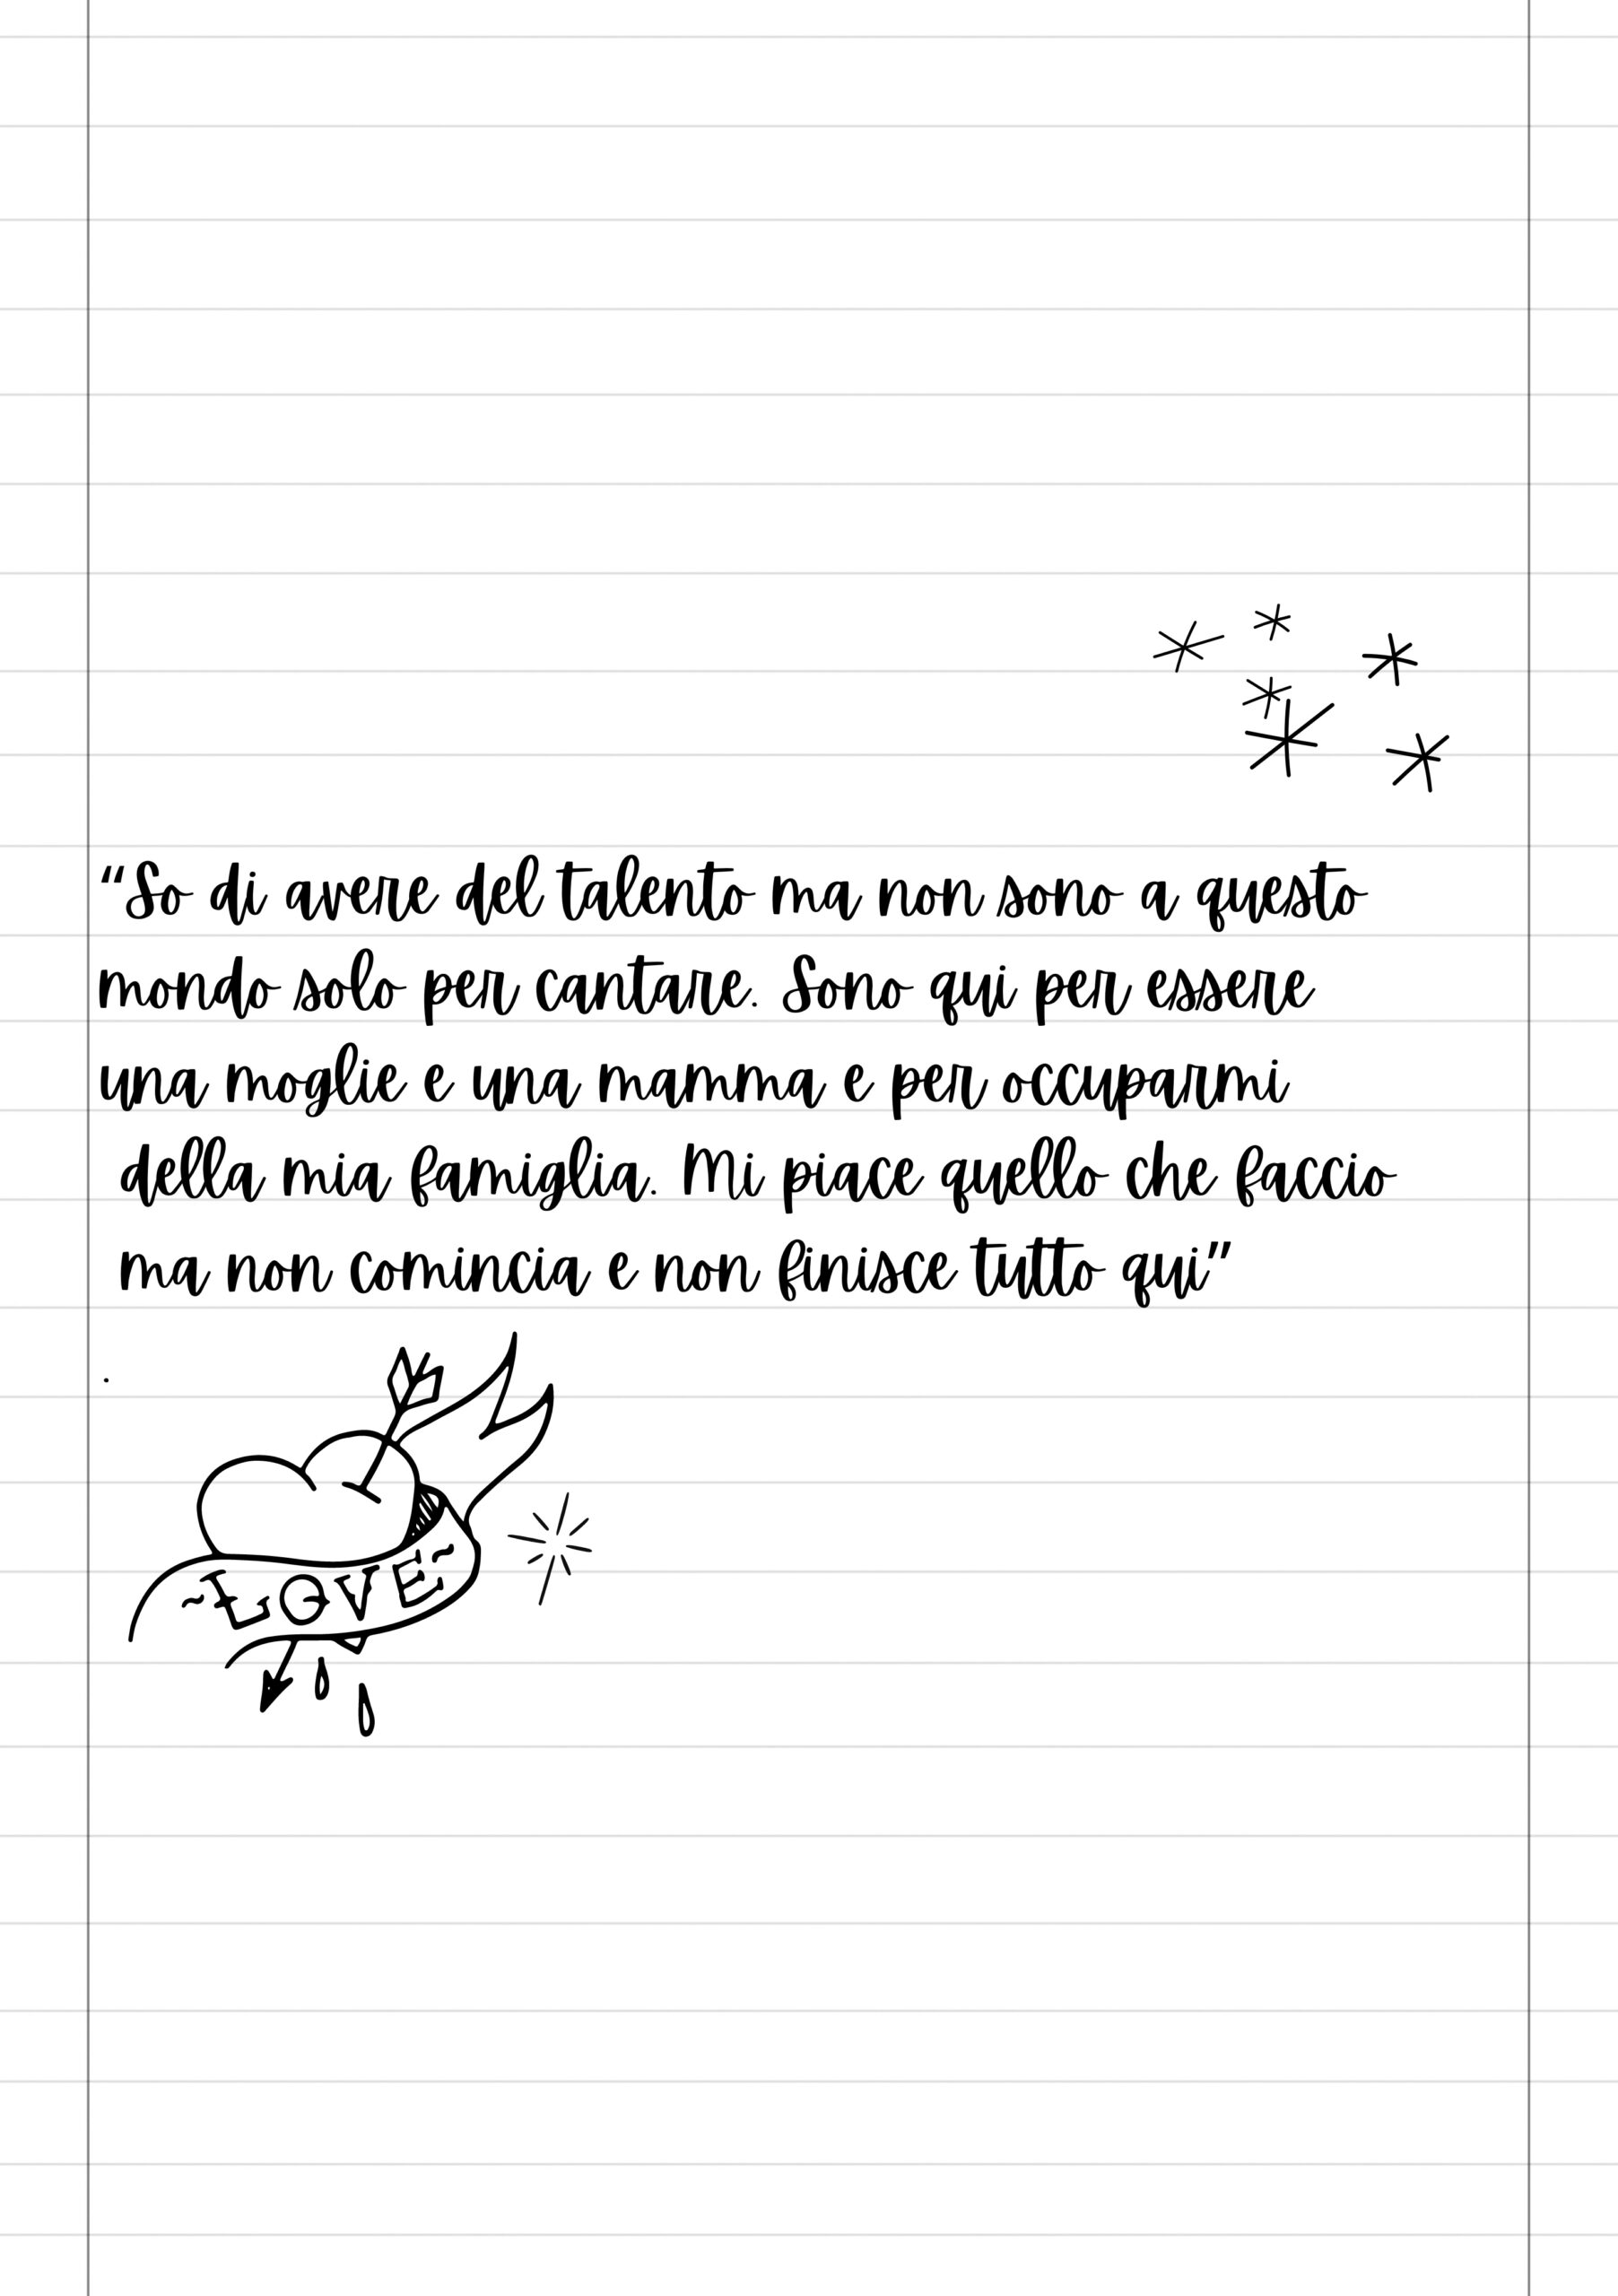 “So di avere del talento ma non sono a questo
mondo solo per cantare. Sono qui per essere
una moglie e una mamma e per occuparmi
della mia famiglia. Mi piace quello che faccio
ma non comincia e non finisce tutto qui”
.
~LOVE~